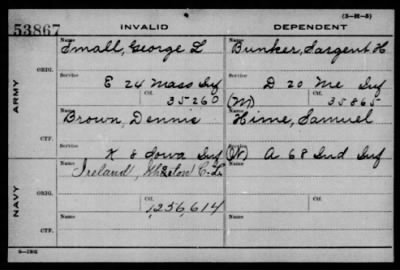 INVALID DEPENDENT
(3-M-5)
53867
Name Small, George L Name Bunker, Sargent H
ORIG.
Service E 24 Mass Inf Service D 20 Me Inf
Ctf. 35260 (M) Ctf. 35865
ARMY
Name Brown, Dennis Name Hime, Samuel
CTF.
Service K 8 Iowa Inf Service (W) A 68 Ind Inf
Name Ireland, C. Name
ORIG.
1,256,614
NAVY
Name Name
CTF.